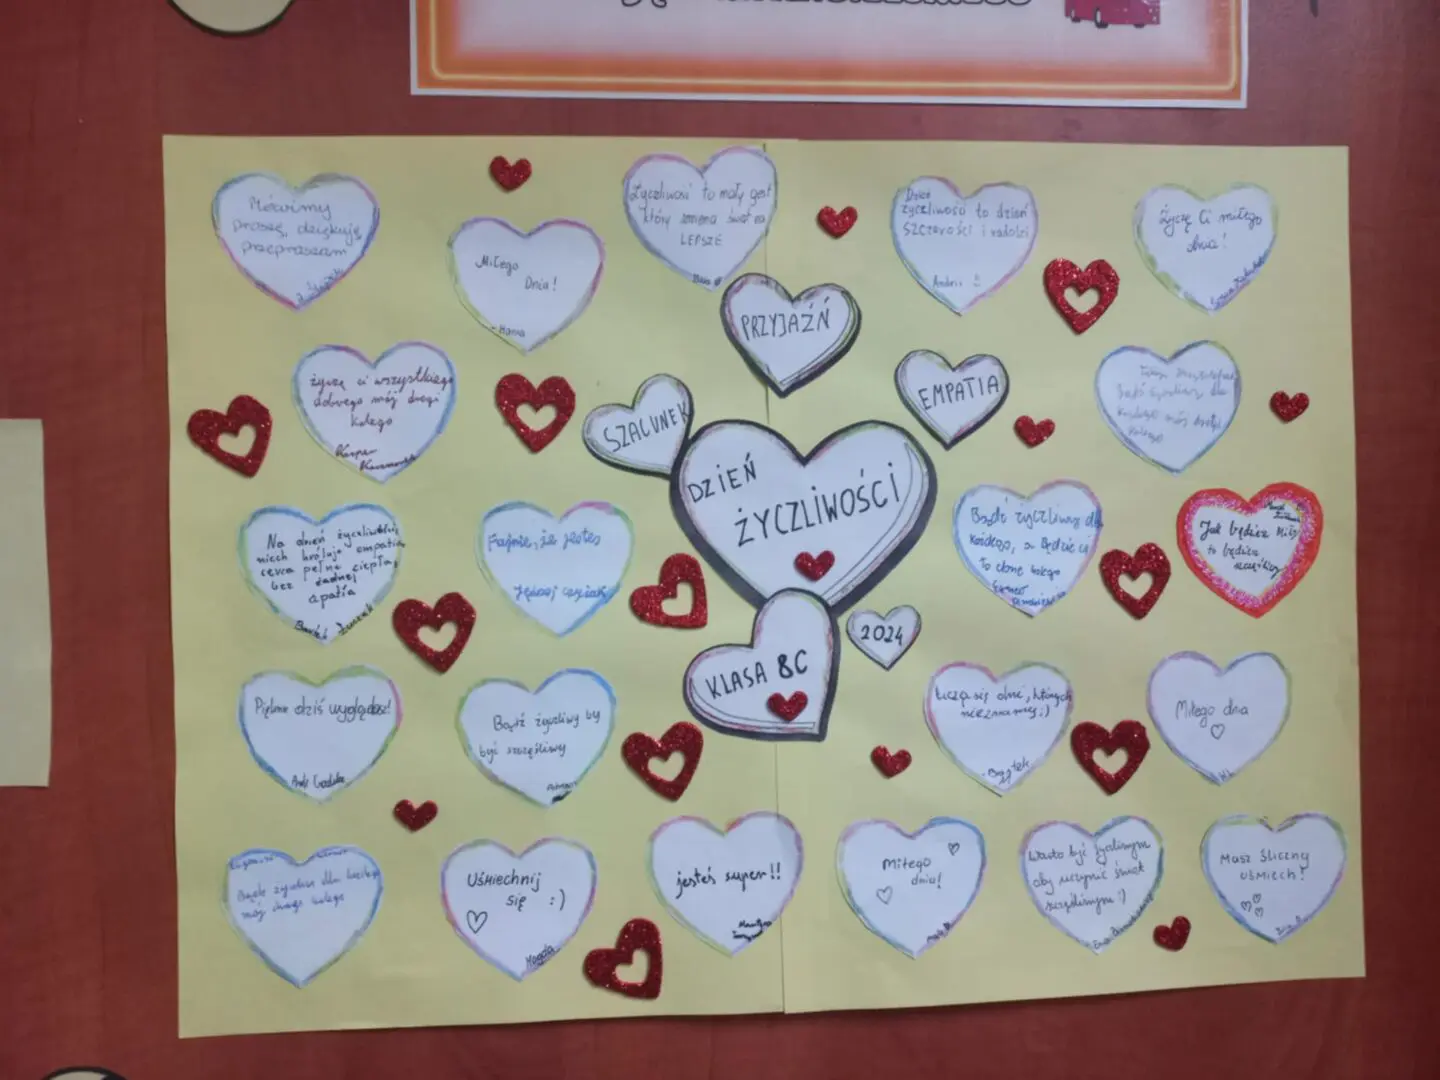 Mówimy
proszę, dziękuję
przepraszam
Miłego
Dnia!
- Hania
Życzliwość to mały gest
który zmienia świat na
LEPSZE
Dzień
życzliwości to dzień
szczerości i radości
Andrii
Życzę Ci miłego
dnia!
PRZYJAŹŃ
EMPATIA
SZACUNEK
DZIEŃ
ŻYCZLIWOŚCI
KLASA 8C
2024
życzę ci wszystkiego
dobrego mój drogi
kolego
Kacper
Bądź życzliwy dla
każdego mój drogi
kolego
Na dzień życzliwości
niech króluje empatia
serca pełne ciepła,
bez żadnej
apatia
Bartek
Fajnie, że jesteś
Bądź życzliwy dla
każdego, a będzie ci
to dane kolego
Jak będziesz miły
to będziesz
szczęśliwy
Pięknie dziś wyglądasz!
Bądź życzliwy by
być szczęśliwy
Liczą się dni, których
nie znamy ;)
- Bartek
Miłego dnia
Bądź życzliwy dla każdego
mój drogi kolego
Uśmiechnij
się :)
Magda
jesteś super!!
Martyna
Miłego
dnia!
Warto być życzliwym
aby uczynić świat
szczęśliwym :)
Masz śliczny
uśmiech!